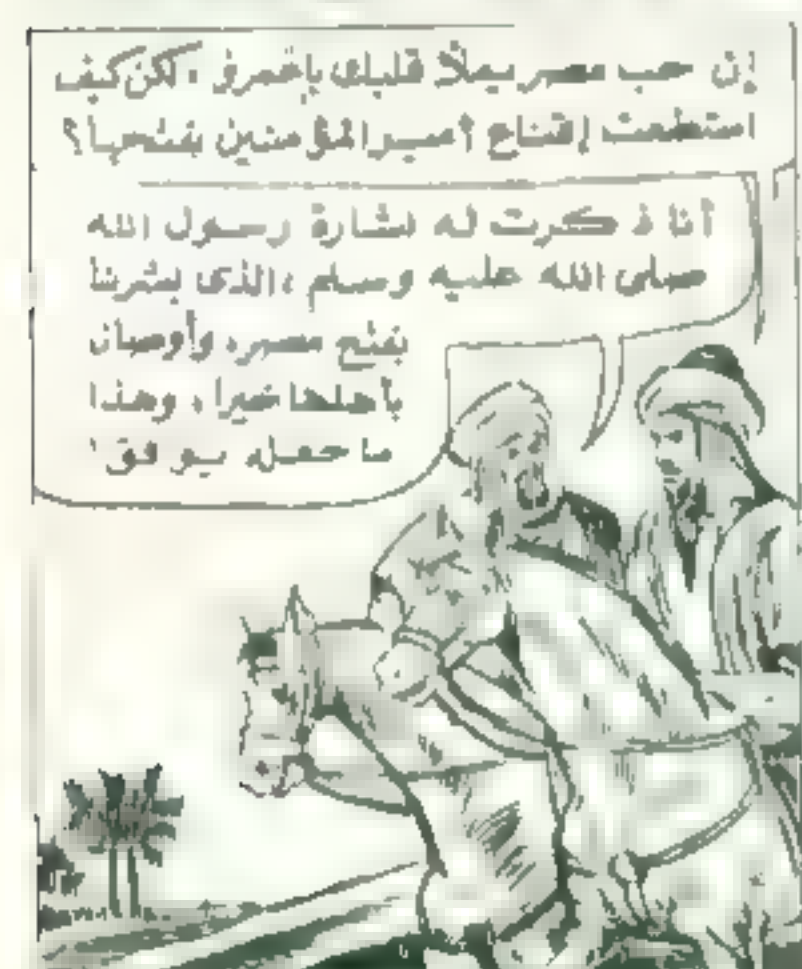 إن حب مصر يملأ قلبك يا عمرو ، لكن كيف
استطعت إقناع أمير المؤمنين بفتحها؟
أنا ذكرت له بشارة رسول الله
صلى الله عليه وسلم ، الذى بشرنا
بفتح مصر، وأوصانا
بأهلها خيرا ، وهذا
ما جعله يوافق